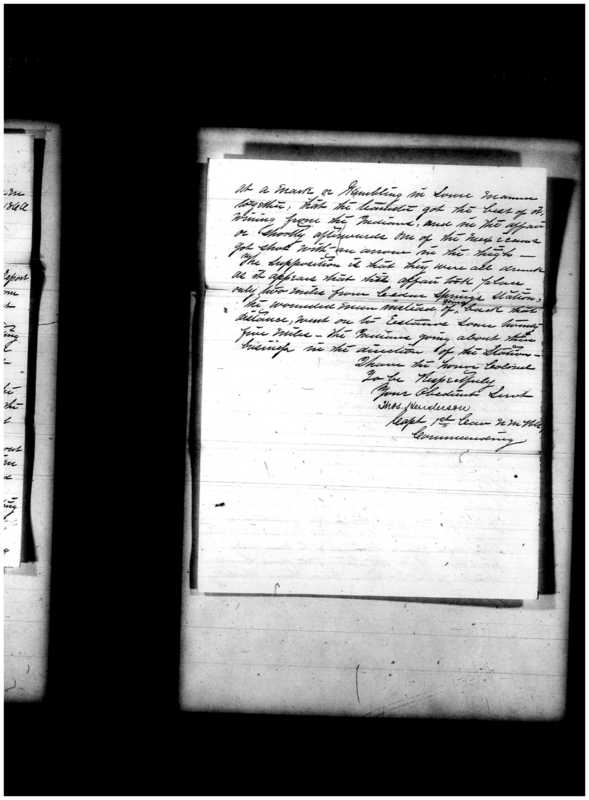 at a mark or Gambling in some manner
together, that the bandits got the best of it,
wining from the Indians, and in the affair
or shortly afterwards one of the Mexicans
got shot with an arrow in the thigh —
The supposition is that they were all drunk
as it appears that this affair took place
only two miles from Cedar Springs Station,
the wounded man instead of going back that
distance, went on to Estancia some twenty
five miles — the Indians going about their
business in the direction of the Station —
I have the honor Colonel
To be Respectfully
Your Obedient Servt
Thos. Henderson
Capt 1st Cav N M Vols
Commanding
Report
the
out